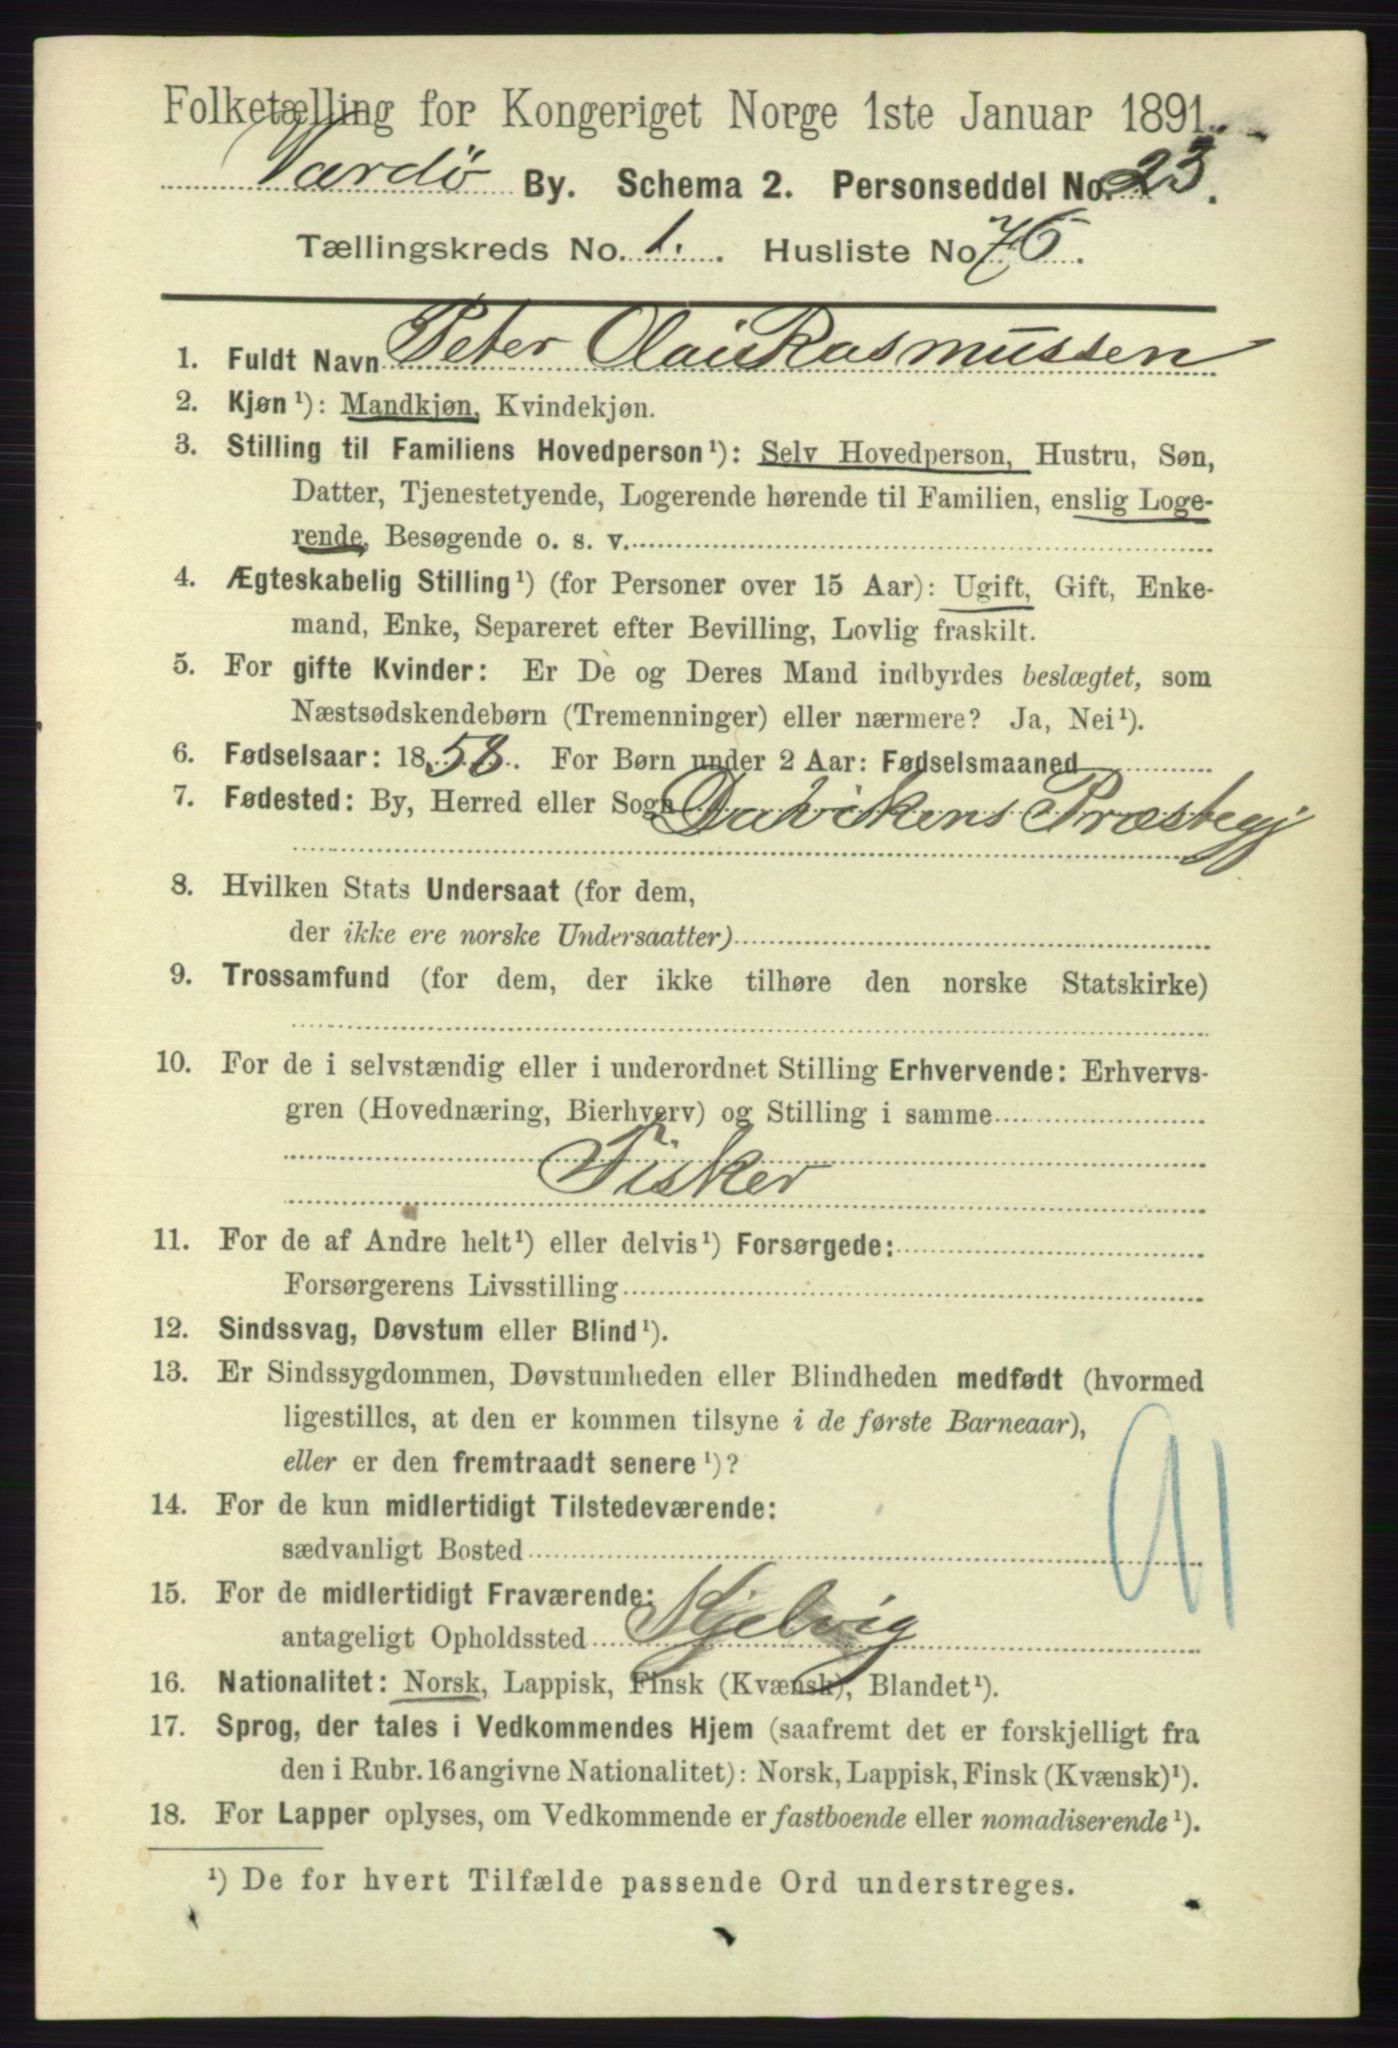 Folketælling for Kongeriget Norge 1ste Januar 1891.
Vardö By. Schema 2. Personseddel No. 23.
Tællingskreds No. 1. Husliste No 76.
1. Fuldt Navn Peter Olai Rasmussen
2. Kjøn¹): Mandkjøn, Kvindekjøn.
3. Stilling til Familiens Hovedperson¹): Selv Hovedperson, Hustru, Søn,
Datter, Tjenestetyende, Logerende hørende til Familien, enslig Loge-
rende, Besøgende o. s. v.
4. Ægteskabelig Stilling¹) (for Personer over 15 Aar): Ugift, Gift, Enke-
mand, Enke, Separeret efter Bevilling, Lovlig fraskilt.
5. For gifte Kvinder: Er De og Deres Mand indbyrdes beslægtet, som
Næstsødskendebørn (Tremenninger) eller nærmere? Ja, Nei¹).
6. Fødselsaar: 1858. For Børn under 2 Aar: Fødselsmaaned
7. Fødested: By, Herred eller Sogn Davikens Præstegj
8. Hvilken Stats Undersaat (for dem,
der ikke ere norske Undersaatter)
9. Trossamfund (for dem, der ikke tilhøre den norske Statskirke)
10. For de i selvstændig eller i underordnet Stilling Erhvervende: Erhvervs-
gren (Hovednæring, Bierhverv) og Stilling i samme
Fisker
11. For de af Andre helt¹) eller delvis¹) Forsørgede:
Forsørgerens Livsstilling
12. Sindssvag, Døvstum eller Blind¹).
13. Er Sindssygdommen, Døvstumheden eller Blindheden medfødt (hvormed
ligestilles, at den er kommen tilsyne i de første Barneaar),
eller er den fremtraadt senere¹)?
14. For de kun midlertidigt Tilstedeværende:
sædvanligt Bosted
91
15. For de midlertidigt Fraværende:
antageligt Opholdssted Kjelvig
16. Nationalitet: Norsk, Lappisk, Finsk (Kvænsk), Blandet¹).
17. Sprog, der tales i Vedkommendes Hjem (saafremt det er forskjelligt fra
den i Rubr. 16 angivne Nationalitet): Norsk, Lappisk, Finsk (Kvænsk)¹).
18. For Lapper oplyses, om Vedkommende er fastboende eller nomadiserende¹).
¹) De for hvert Tilfælde passende Ord understreges.